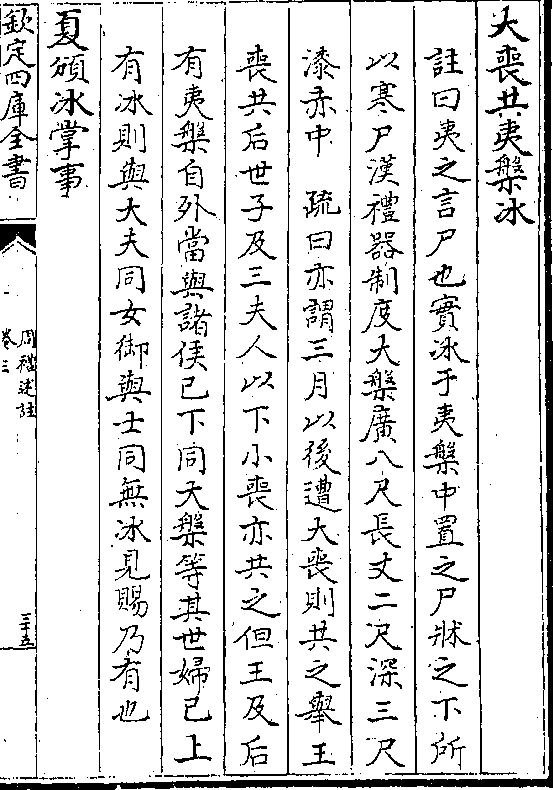 大喪共夷槃冰
註曰夷之言尸也實冰于夷槃中置之尸牀之下所
以寒尸漢禮器制度大槃廣八尺長丈二尺深三尺
漆赤中　疏曰亦謂三月以後遭大喪則共之舉王
喪其后世子及三夫人以下小喪亦共之但王及后
有夷槃自外當與諸侯已下同大槃等其世婦已上
有冰則與大夫同女御與士同無冰見賜乃有也
夏頒冰掌事
欽定四庫全書
周禮述註
卷三
三十五